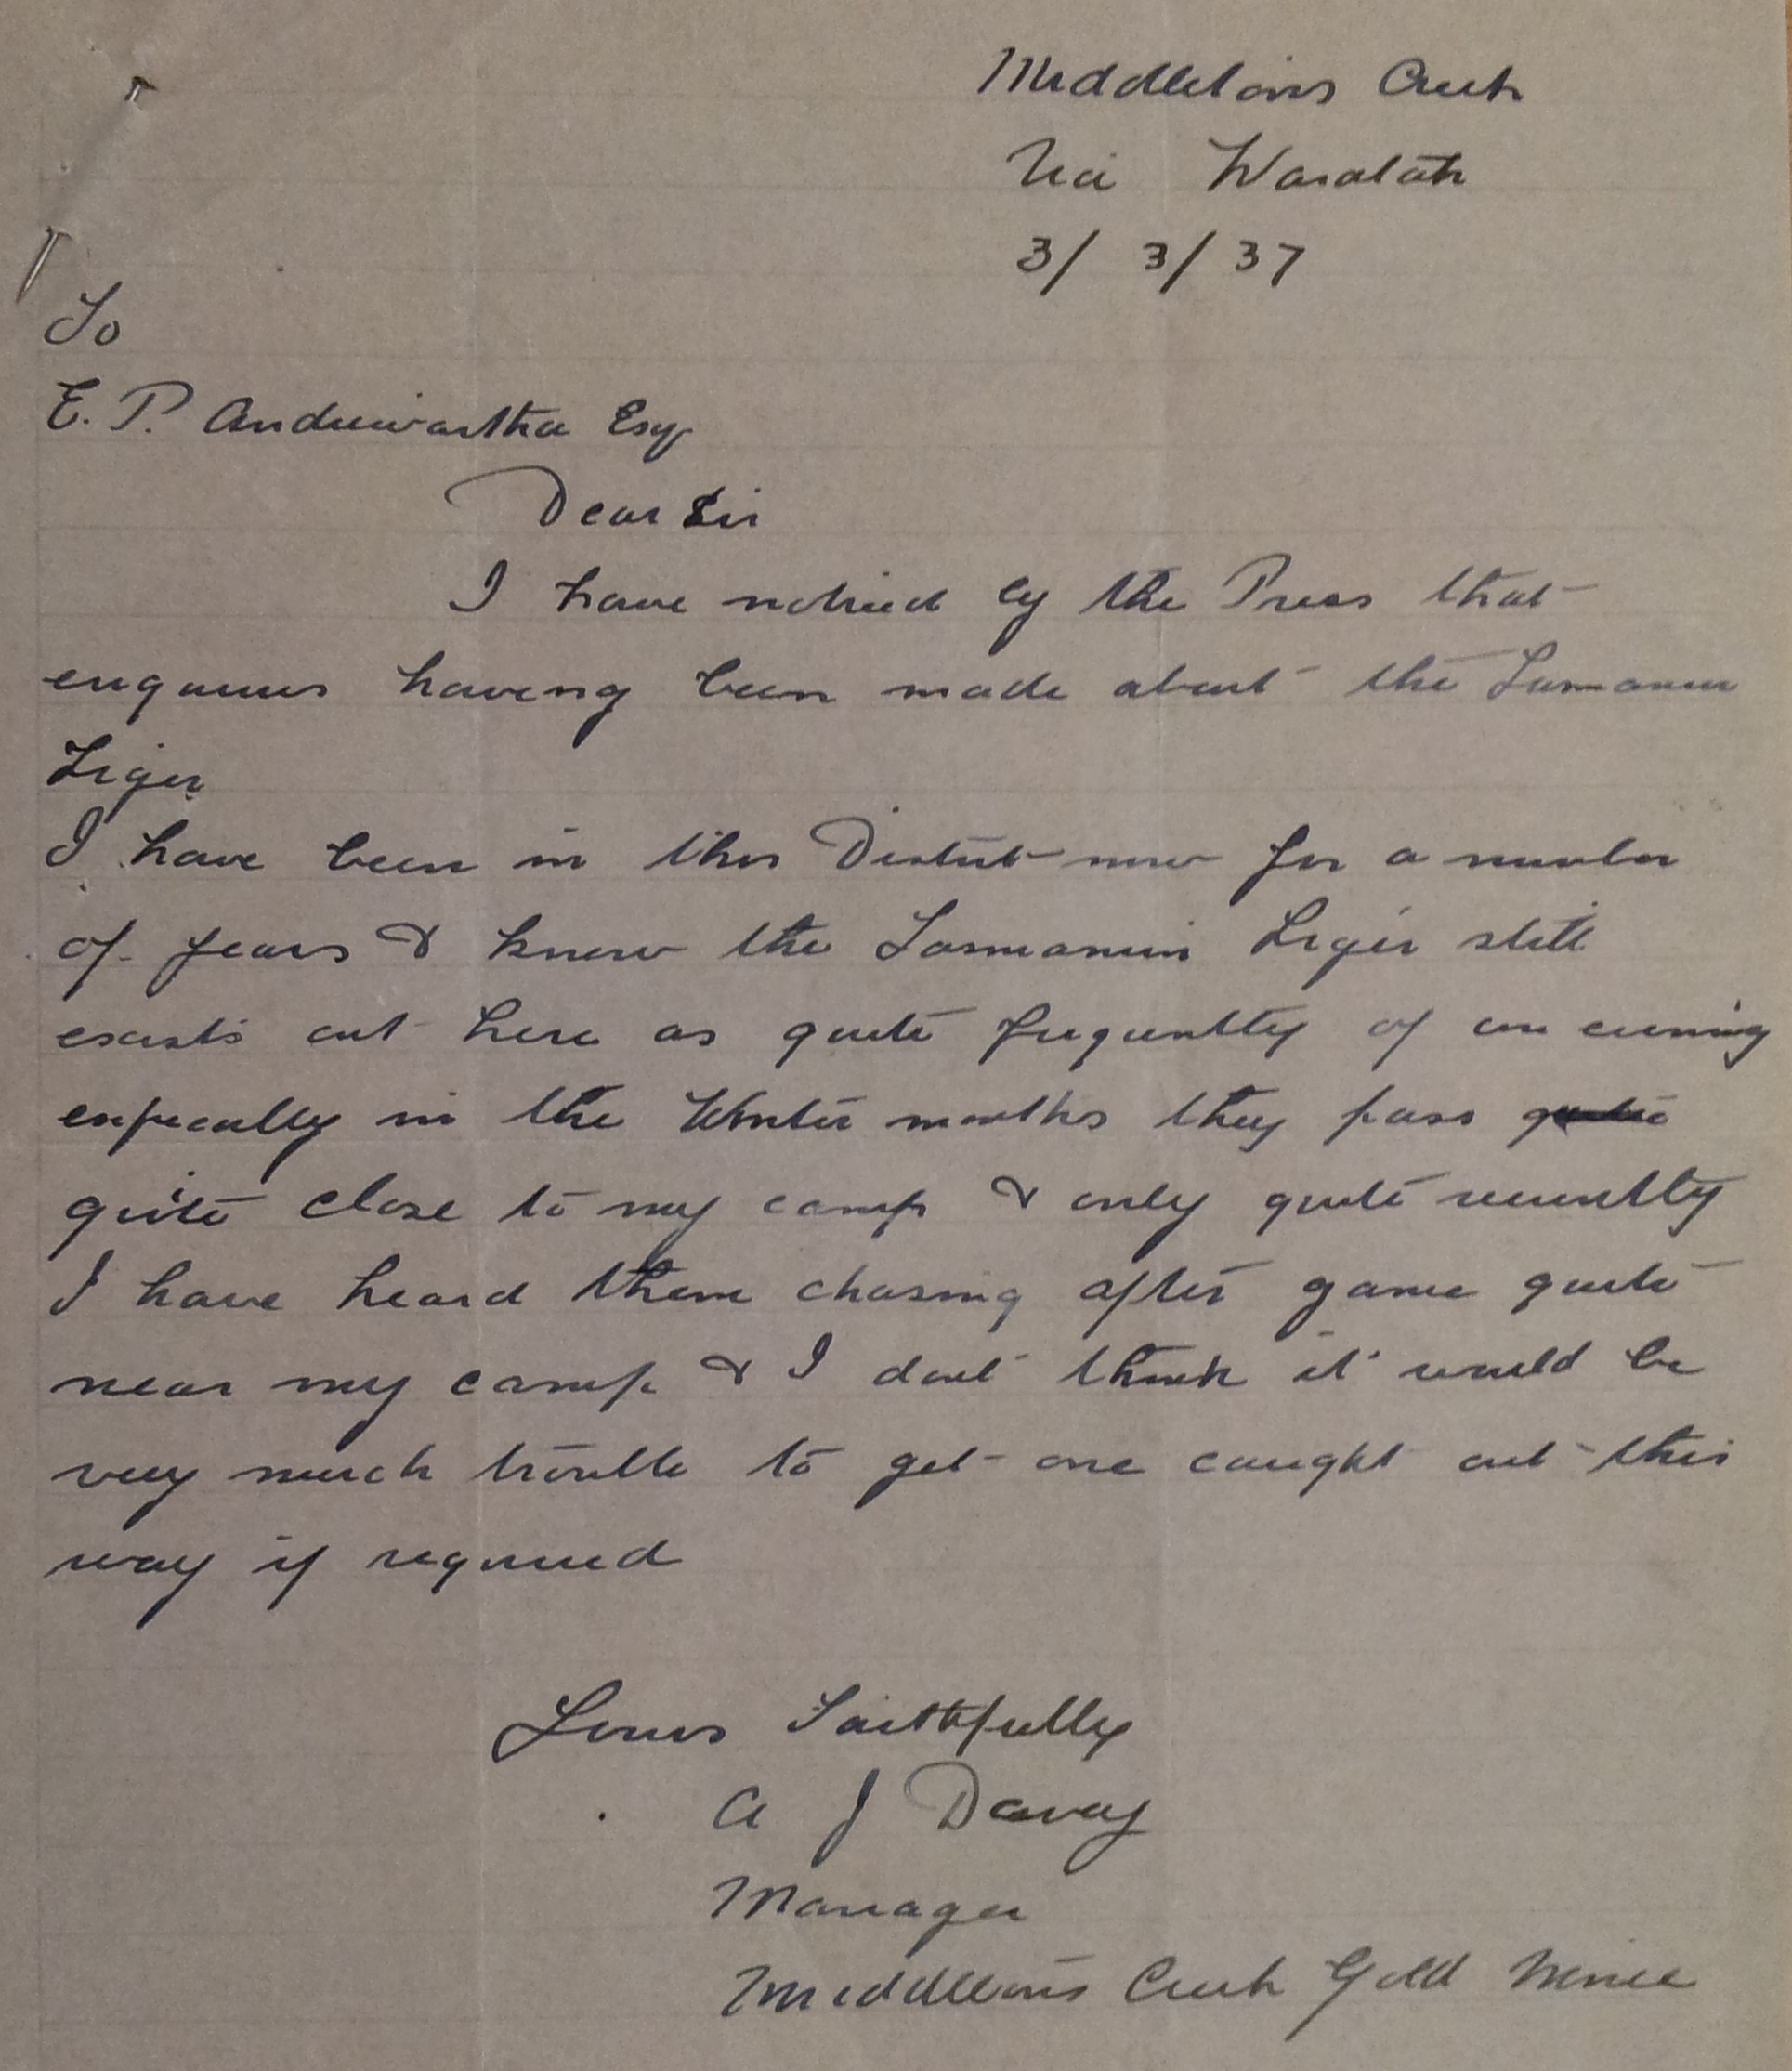 Middletons Creek
Via Waratah
3/ 3/ 37
To
E. P. Andrewartha Esq
Dear Sir
I have noticed by the Press that
enquiries haveing been made about the Tasmanian
Tiger
I have been in this District now for a number
of years & know the Tasmanian Tiger still
exists out here as quite frequently of an evening
especially in the Winter months they pass quite
quite close to my camp & only quite recently
I have heard them chasing after game quite
near my camp & I dont think it would be
very much trouble to get one caught out this
way if required
Yours Faithfully
A J Davey
Manager
Middletons Creek Gold Mine